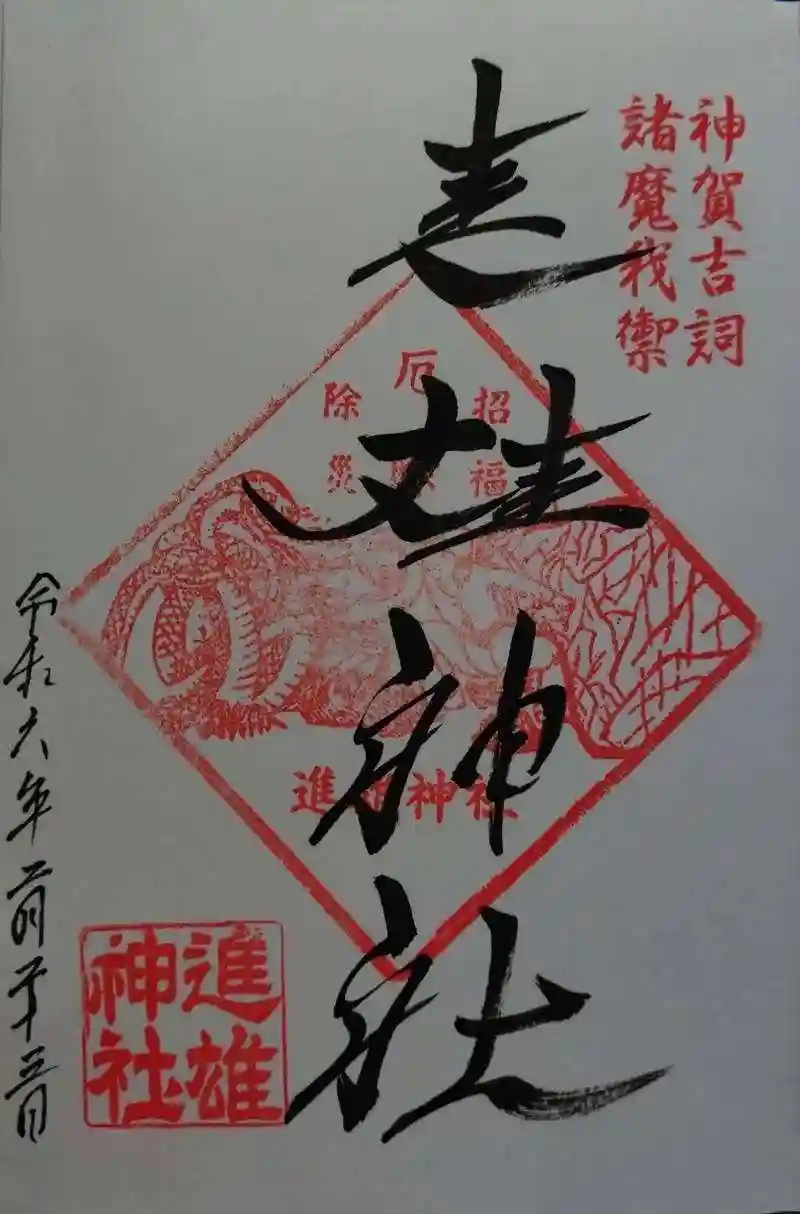 神賀吉詞
諸魔我禦
進雄神社
招福
厄
除災
進雄神社
進雄
神社
令和六年二月二十三日